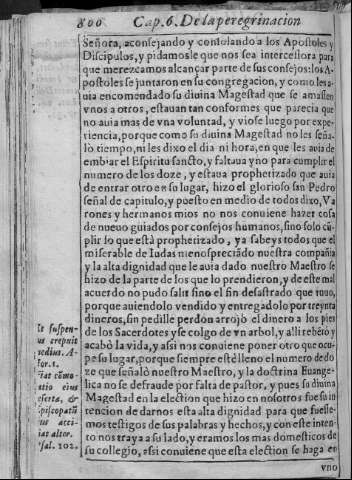 800 Cap. 6. De la peregrinacion
Señora, aconsejando y consolando a los Apostoles y
Discipulos, y pidamosle que nos sea intercessora para
que merezcamos alcançar parte de sus consejos: los A-
postoles se juntaron en su congregacion, y como les a-
uia encomendado su diuina Magestad que se amassen
vnos a otros, estauan tan conformes que parecia que
no auia mas de vna voluntad, y viose luego por expe-
riencia, porque como su diuina Magestad no les seña-
lo tiempo, ni les dixo el dia ni hora, en que les auia de
embiar el Espiritu sancto, y faltaua vno para cumplir el
numero de los doze, y estaua prophetizado que auia
de entrar otro en su lugar, hizo el glorioso san Pedro
señal de capitulo, y puesto en medio de todos dixo, Va
rones y hermanos mios no nos conuiene hazer cosa
de nueuo guiados por consejos humanos, sino solo cũ-
plir lo que està prophetizado, ya sabeys todos que el
miserable de Iudas menospreciãdo nuestra compañia
y la alta dignidad que le auia dado nuestro Maestro se
hizo de la parte de los que lo prendieron, y de este mal
acuerdo no pudo salir sino el fin desastrado que tuuo,
porque auiendolo vendido y entregadolo por treynta
dineros, sin pedille perdon arrojò el dinero a los pies
de los Sacerdotes y se colgo de vn arbol, y alli rebẽtò y
acabò la vida, y asi nos conuiene poner otro que ocu-
pe su lugar, porque siempre esté lleno el numero de do
ze que señalò nuestro Maestro, y la doctrina Euange-
lica no se defraude por falta de pastor, y pues su diuina
Magestad en la election que hizo en nosotros fue su in
tencion de darnos esta alta dignidad para que fuesse-
mos testigos de sus palabras y hechos, y con este inten-
to nos traya a su lado, y eramos los mas domesticos de
su collegio, assi conuiene que esta election se haga en
vno
suspen-
us crepuit
medius. A-
ctor. 1.
Fiat cõmo-
ratio eius
deserta, &
Episcopatũ
eius acci-
piat alter.
Psal. 102.